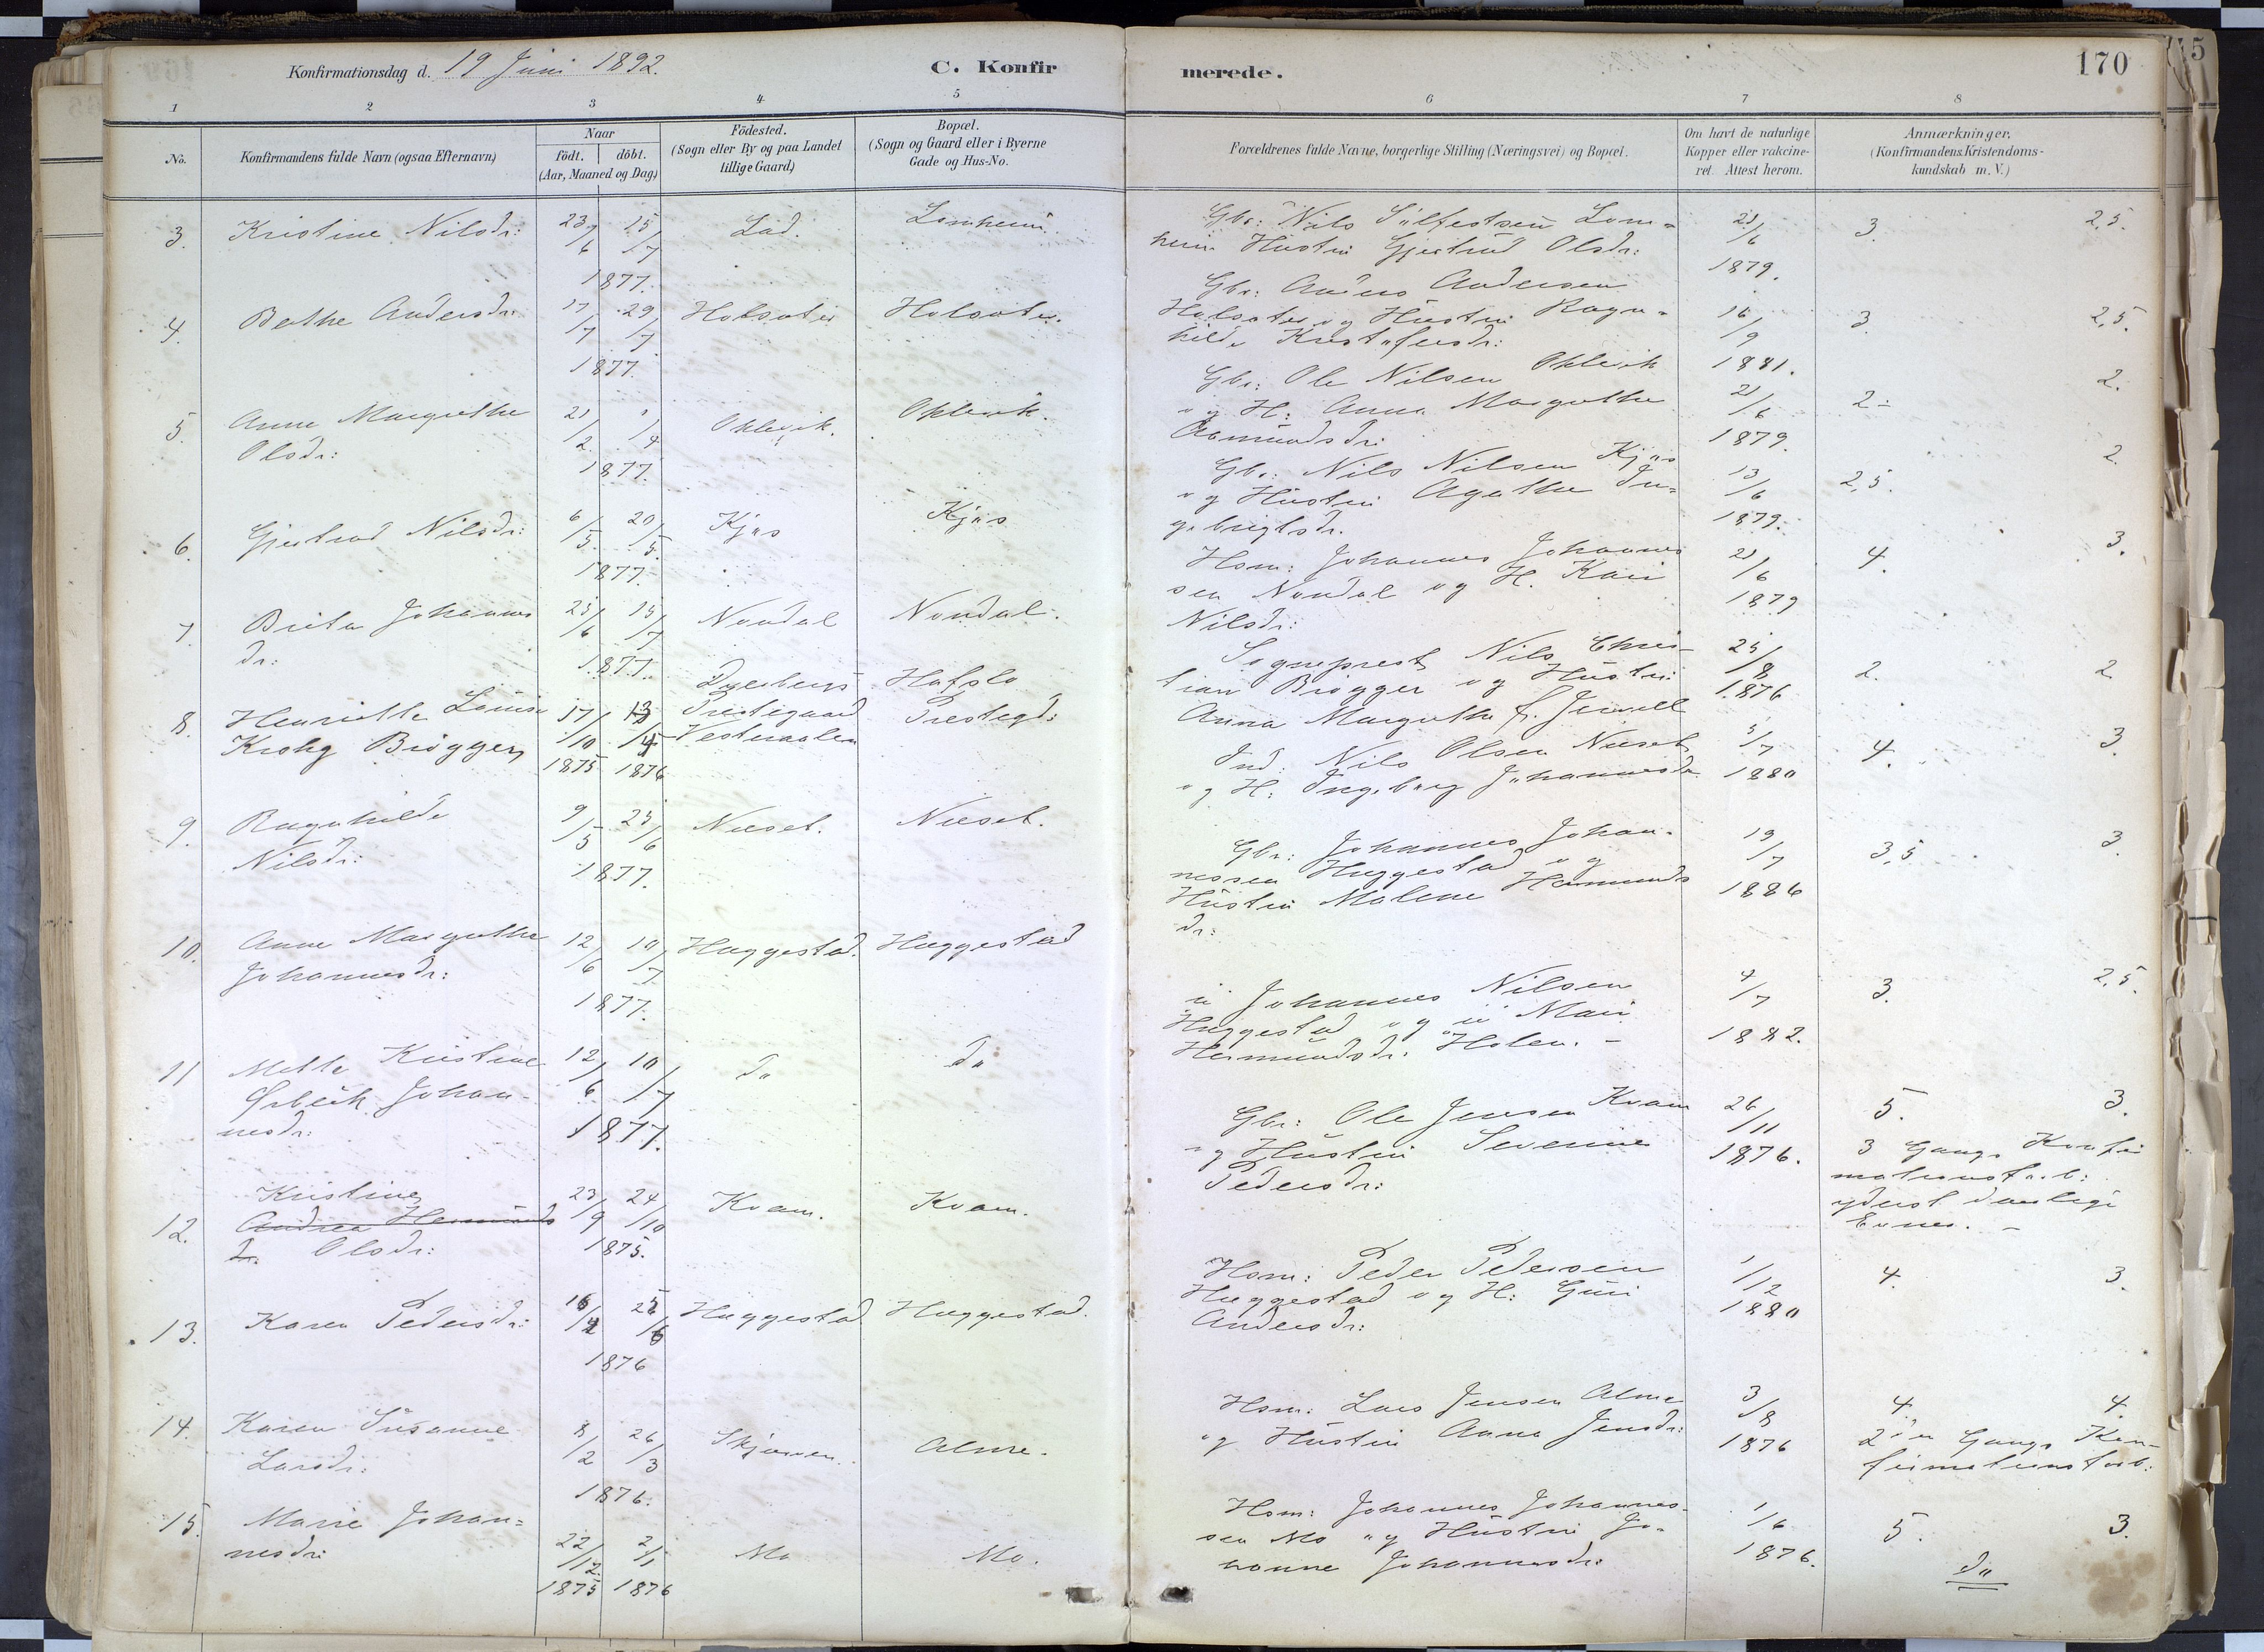 Konfirmationsdag d. 19 Juni 1892.
C. Konfir
merede.
170
1 2 3 4 5 6 7 8
No.
Konfirmandens fulde Navn (ogsaa Efternavn)
Naar
födt. döbt.
(Aar, Maaned og Dag)
Födested.
(Sogn eller By og paa Landet
tillige Gaard)
Bopæl.
(Sogn og Gaard eller i Byerne
Gade og Hus-No.
Forældrenes fulde Navne, borgerlige Stilling (Næringsvei) og Bopæl.
Om havt de naturlige
Kopper eller vakcine-
ret. Attest herom.
Anmærkninger.
(Konfirmandens Kristendoms-
kundskab m. V.)
3. Kristine Nilsdr: 23/6 15/7
1877.
Lad. Lomheim.
Gbr: Nils Sülfestsen Lom-
heim Hüstrü Gjertrüd Olsdr:
21/6
1879.
3. 2,5.
4. Berthe Andersdr: 17/7 29/7
1877.
Holsæter Holsæter.
Gbr: Anders Andersen
Holsæter og Hüstrü Ragn-
hilde Kristofersdr:
16/9
1881.
3. 2,5.
5. Anne Margrethe
Olsdr:
21/2 1/4
1877.
Oklevik. Oklevik.
Gbr: Ole Nilsen Oklevik
og H: Anna Margrethe
Aamundsdr:
21/6
1879.
2- 2.
6. Gjertrud Nilsdr: 6/5. 20/5.
1877.
Kjøs Kjøs
Gbr: Nils Nilsen Kjøs
og Hüstrü Agathe In-
gebrigtsdr.
13/6
1879.
2,5. 2.
7. Brita Johannes
dr:
23/6 15/7
1877.
Nondal Nondal.
Hsm: Johannes Johannes
sen Nondal og H. Kari
Nilsdr:
21/6
1879
4. 3.
8. Henriette Louise
Krohg Brøgger
17/10 13/4
1875 1876
Dverbergs
Prestegaard
Vesteraalen
Hafslo
Prestegd:
Sogneprest Nils Chris-
tian Brøgger og Hüstrü
Anna Margrethe f. Jewell
25/8
1876
2. 2
9. Ragnhilde
Nilsdr:
9/5 23/6
1877.
Neeset. Neeset.
Ind: Nils Olsen Neeset
og H: Ingeborg Johannesdr
5/7
1880
4. 3.
10. Anne Margrethe
Johannesdr:
12/6 10/7
1877.
Huggestad. Huggestad
Gbr: Johannes Johan-
nessen Huggestad og
Hüstrü Malene Hermunds
dr:
19/7
1886
3,5 3.
11 Mette Kristine
Johan-
nesdr:
12/6 10/7
1877.
do do
Johannes Nilsen
Huggestad og Mari
Hermündsdr: Holen. -
4/7
1882.
3. 2,5.
12. Kristine
Andrea Hermunds
dr. Olsdr:
23/9 24/10
1875.
Kvam. Kvam.
Gbr: Ole Jensen Kvam
og Hüstrü Severine
Pedersdr:
26/11
1876.
5. 3.
3 Gangs Konfir
mationsforb:
yderst daarlige
Evner. -
13. Karen Pedersdr: 16/4 25/6
1876
Huggestad Huggestad.
Hsm: Peder Pedersen
Huggestad og H: Güri
Andersdr:
1/12
1880
4. 3.
14. Karen Susanne
Larsdr:
8/2 26/3
1876.
Skjerven. Alme.
Hsm: Lars Jensen Alme
og Hüstrü Anna Jensdr:
3/8
1876
4. 4.
2den Gangs Kon-
firmationsforb:
15. Marie Johan-
nesdr:
22/12 2/1
1875 1876
Mo Mo.
Hsm: Johannes Johannes-
sen Mo og Hüstrü Jo-
hanne Johannesdr:
1/6
1876.
5. 3.
do